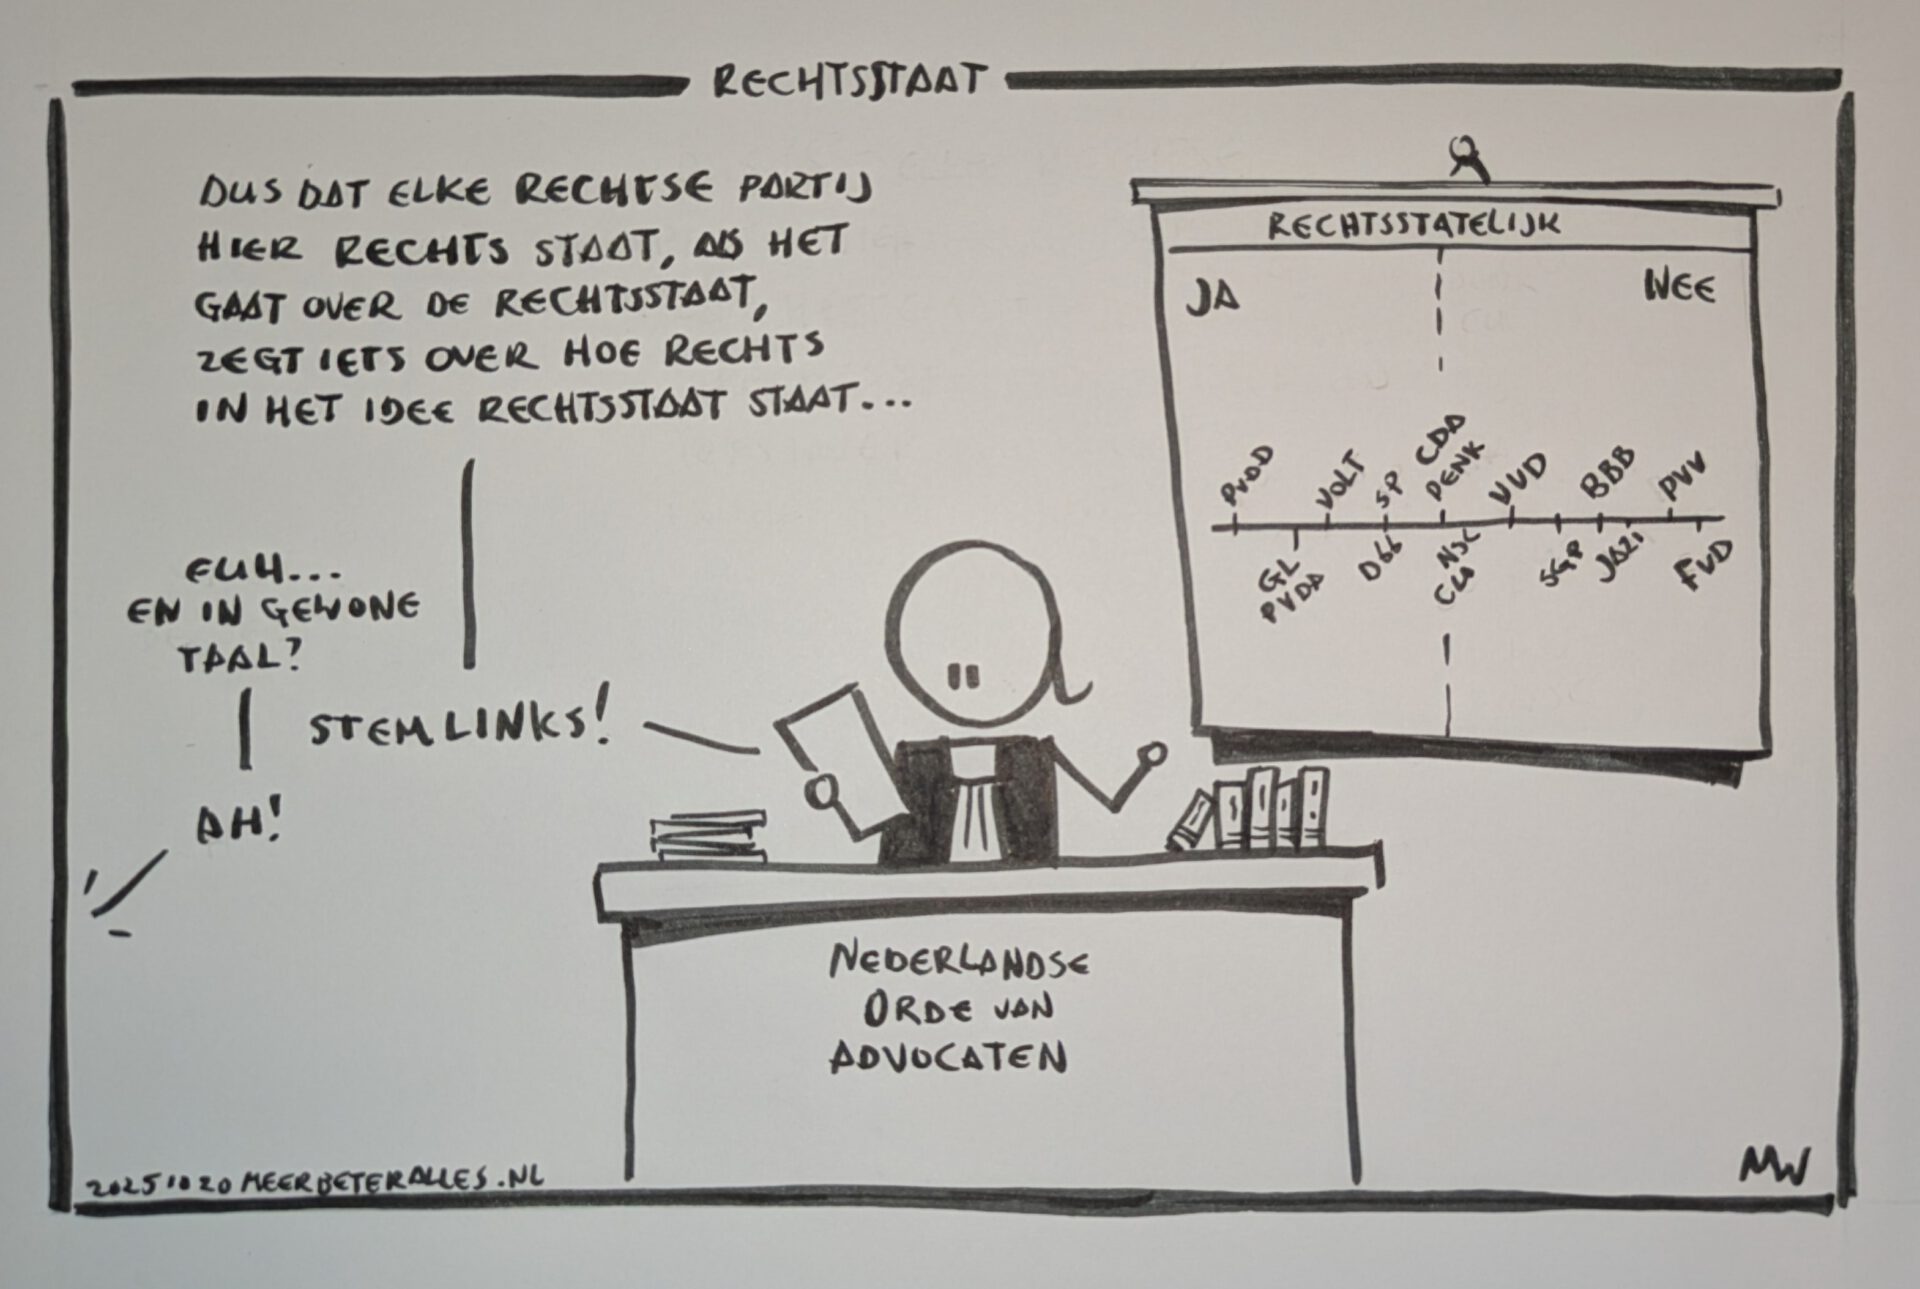 RECHTSSTAAT
DUS DAT ELKE RECHTSE PARTIJ
HIER RECHTS STAAT, ALS HET
GAAT OVER DE RECHTSSTAAT,
ZEGT IETS OVER HOE RECHTS
IN HET IDEE RECHTSSTAAT STAAT...
EUH...
EN IN GEWONE
TAAL?
STEM LINKS!
AH!
RECHTSSTATELIJK
JA
NEE
PVDD
VOLT
SP
CDA
DENK
VVD
BBB
PVV
GL
PVDA
D66
NSC
CU
SGP
JA21
FVD
NEDERLANDSE
ORDE VAN
ADVOCATEN
20251020 MEERBETERALLES.NL
MW